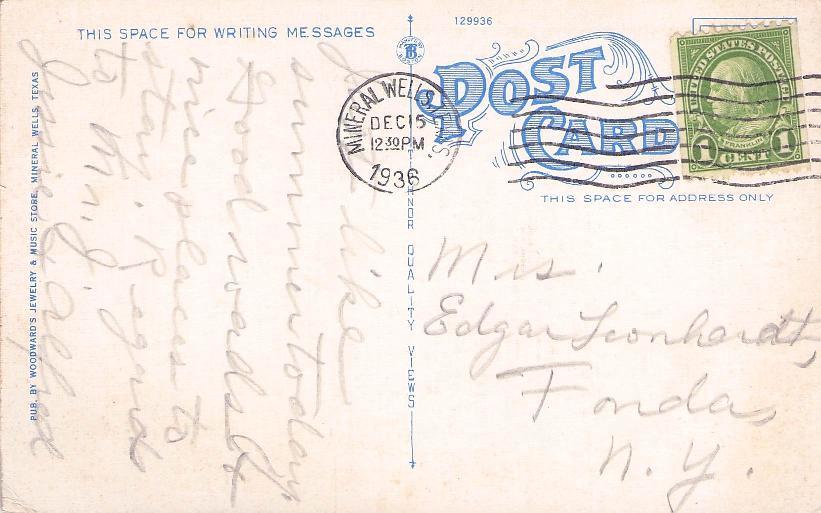 THIS SPACE FOR WRITING MESSAGES
129936
POST
CARD
MINERAL WELLS, TEXAS.
DEC 15
12 30 PM
1936
UNITED STATES POSTAGE
FRANKLIN
1 CENT 1
THIS SPACE FOR ADDRESS ONLY
like
summer today
Good roads &
nice places to
stay. Regards
to M. J.
Jessie & Alfred
Mrs.
Edgar Leonhardt,
Fonda,
N. Y.
PUB. BY WOODWARD'S JEWELRY & MUSIC STORE, MINERAL WELLS, TEXAS
QUALITY VIEWS